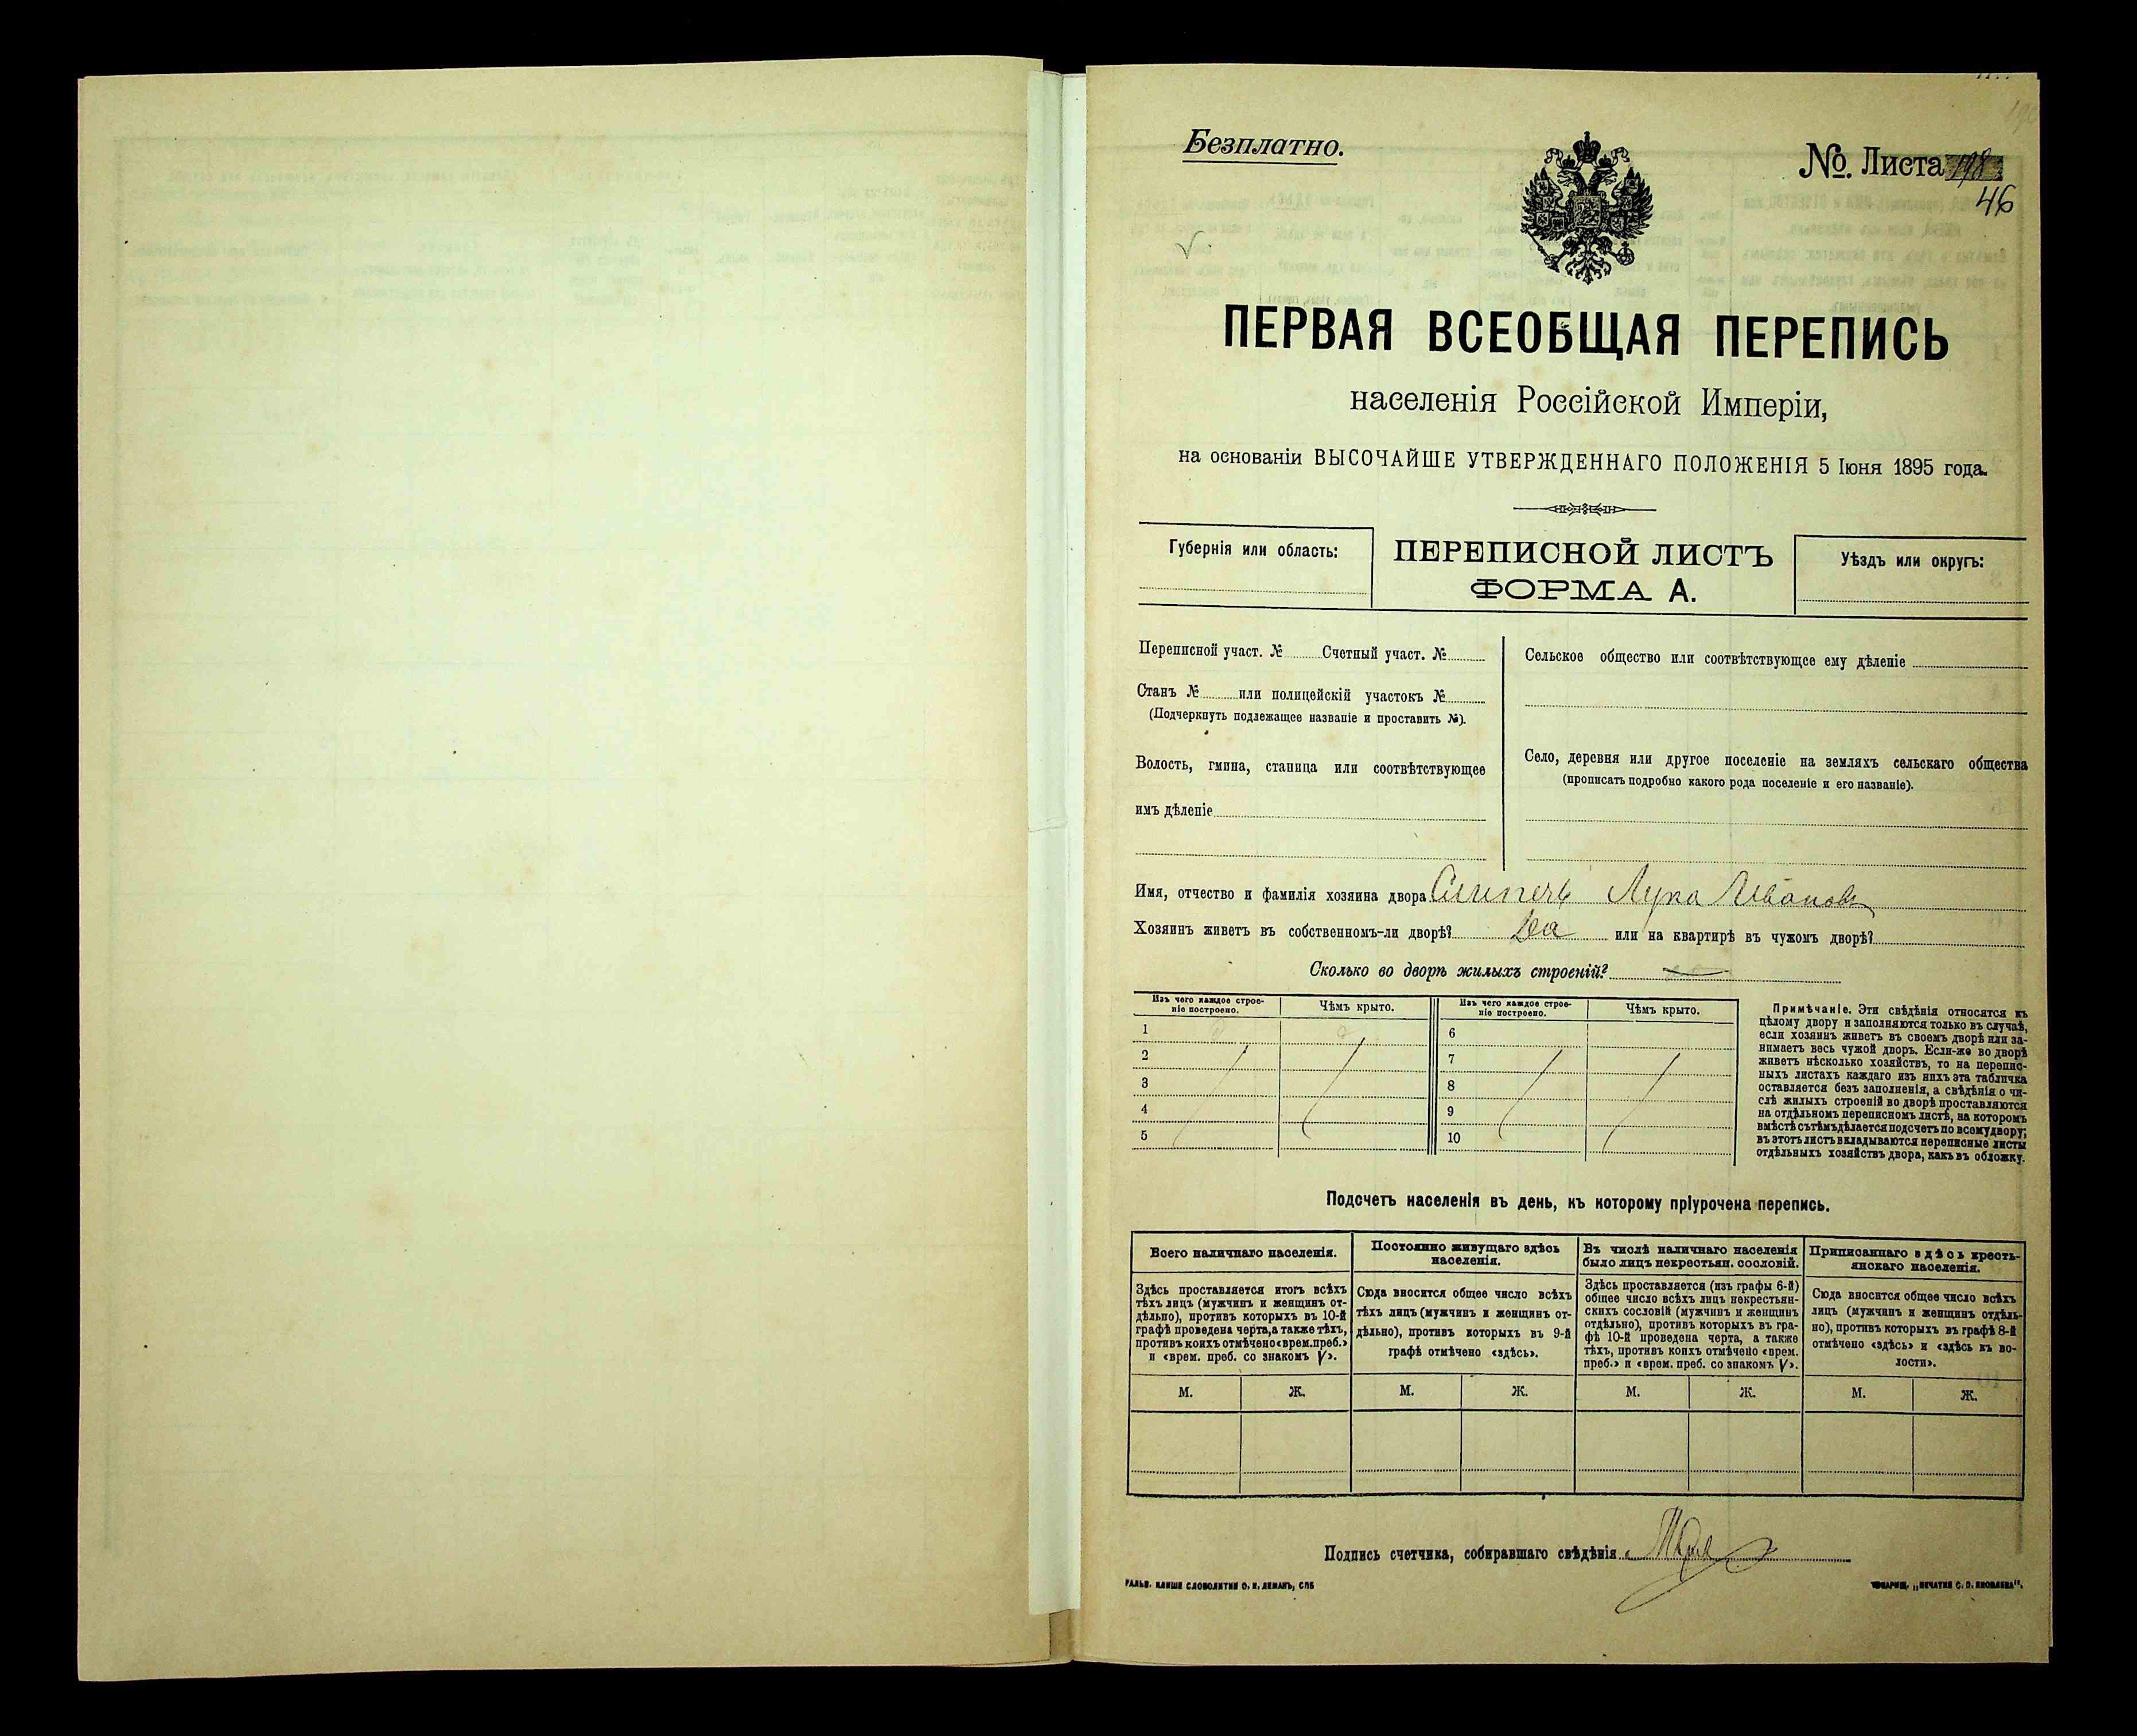 Безплатно.
№. Листа 198
46
ПЕРВАЯ ВСЕОБЩАЯ ПЕРЕПИСЬ
населенія Россійской Имперіи,
на основаніи ВЫСОЧАЙШЕ УТВЕРЖДЕННАГО ПОЛОЖЕНІЯ 5 Іюня 1895 года.
Губернія или область:
ПЕРЕПИСНОЙ ЛИСТЪ
ФОРМА А.
Уѣздъ или округъ:
Переписной участ. № Счетный участ. №
Станъ № или полицейскій участокъ №
(Подчеркнуть подлежащее названіе и проставить №).
Волость, гмина, станица или соотвѣтствующее
имъ дѣленіе
Сельское общество или соотвѣтствующее ему дѣленіе
Село, деревня или другое поселеніе на земляхъ сельскаго общества
(прописать подробно какого рода поселеніе и его названіе).
Имя, отчество и фамилія хозяина двора Лука Ивановъ
Хозяинъ живетъ въ собственномъ-ли дворѣ? Да или на квартирѣ въ чужомъ дворѣ?
Сколько во дворѣ жилыхъ строеній?
Изъ чего каждое строе-
ніе построено.
Чѣмъ крыто.
Изъ чего каждое строе-
ніе построено.
Чѣмъ крыто.
1
2
3
4
5
6
7
8
9
10
Примѣчаніе. Эти свѣдѣнія относятся къ
цѣлому двору и заполняются только въ случаѣ,
если хозяинъ живетъ въ своемъ дворѣ или за-
нимаетъ весь чужой дворъ. Если-же во дворѣ
живетъ нѣсколько хозяйствъ, то на перепис-
ныхъ листахъ каждаго изъ нихъ эта табличка
оставляется безъ заполненія, а свѣдѣнія о чи-
слѣ жилыхъ строеній во дворѣ проставляются
на отдѣльномъ переписномъ листѣ, на которомъ
вмѣстѣ съ тѣмъ дѣлается подсчетъ по всему двору;
въ этотъ листъ вкладываются переписные листы
отдѣльныхъ хозяйствъ двора, какъ въ обложку.
Подсчетъ населенія въ день, къ которому пріурочена перепись.
Всего наличнаго населенія.
Здѣсь проставляется итогъ всѣхъ
тѣхъ лицъ (мужчинъ и женщинъ от-
дѣльно), противъ которыхъ въ 10-й
графѣ проведена черта, а также тѣхъ,
противъ коихъ отмѣчено «врем. преб.»
и «врем. преб. со знакомъ V».
М.
Ж.
Постоянно живущаго здѣсь
населенія.
Сюда вносится общее число всѣхъ
тѣхъ лицъ (мужчинъ и женщинъ от-
дѣльно), противъ которыхъ въ 9-й
графѣ отмѣчено «здѣсь».
М.
Ж.
Въ числѣ наличнаго населенія
было лицъ некрестьян. сословій.
Здѣсь проставляется (изъ графы 6-й)
общее число всѣхъ лицъ некрестьян-
скихъ сословій (мужчинъ и женщинъ
отдѣльно), противъ которыхъ въ гра-
фѣ 10-й проведена черта, а также
тѣхъ, противъ коихъ отмѣчено «врем.
преб.» и «врем. преб. со знакомъ V».
М.
Ж.
Приписаннаго здѣсь кресть-
янскаго населенія.
Сюда вносится общее число всѣхъ
лицъ (мужчинъ и женщинъ отдѣль-
но), противъ которыхъ въ графѣ 8-й
отмѣчено «здѣсь» и «здѣсь къ во-
лости».
М.
Ж.
Подпись счетчика, собиравшаго свѣдѣнія
ГАЛЬВ. КЛИШЕ СЛОВОЛИТНИ О. И. ЛЕМАНЪ, СПБ
ТОВАРИЩ. „ПЕЧАТНЯ С. П. ЯКОВЛЕВА".